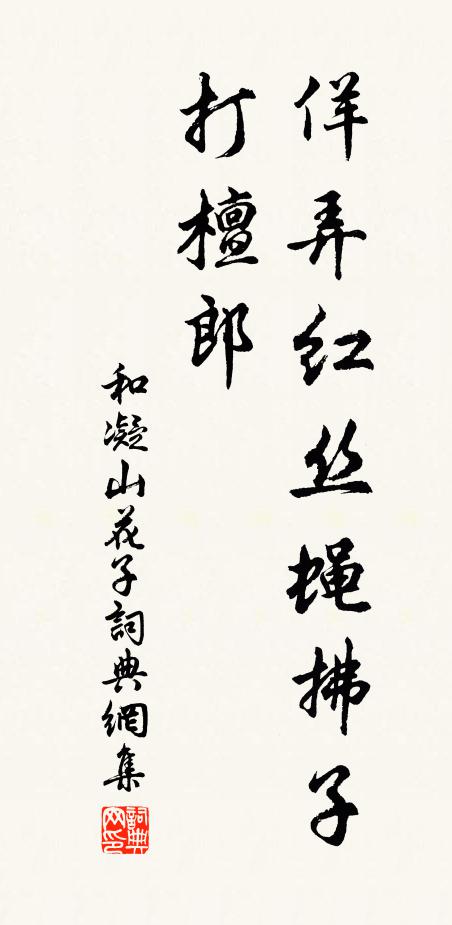 佯弄红丝蝇拂子
打檀郎
和凝山花子詞典網集
詞典网印